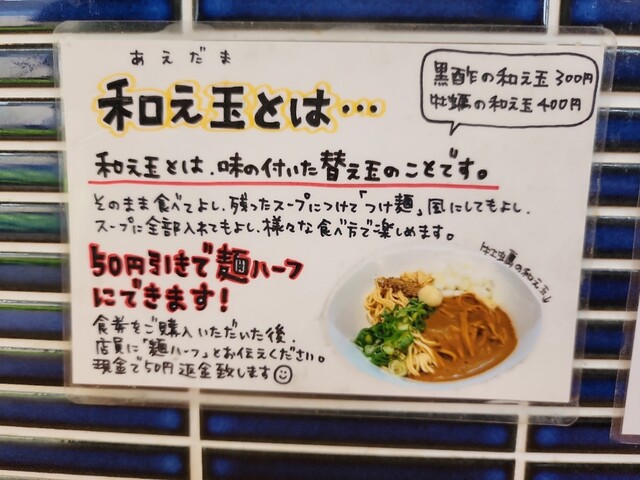 あえだま
和え玉とは…
黒酢の和え玉300円
牡蠣の和え玉400円
和え玉とは、味の付いた替え玉のことです。
そのまま食べてよし、残ったスープにつけて「つけ麺」風にしてもよし、
スープに全部入れてもよし、様々な食べ方で楽しめます。
50円引きで麺ハーフ
にできます!
牡蠣の和え玉
食券をご購入いただいた後、
店員に「麺ハーフ」とお伝えください。
現金で50円返金致します